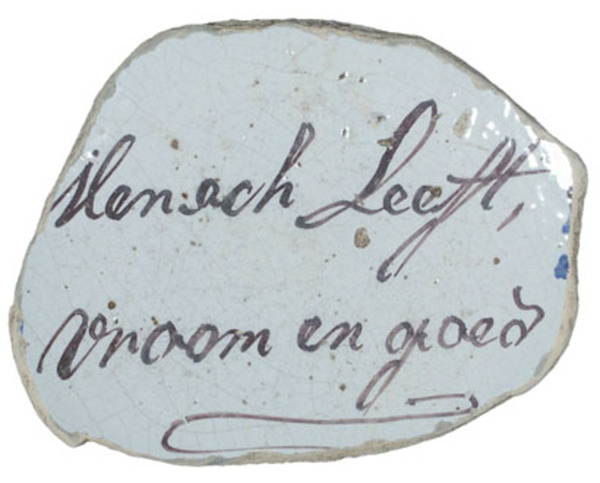 Mensch Leeft,
vroom en goed